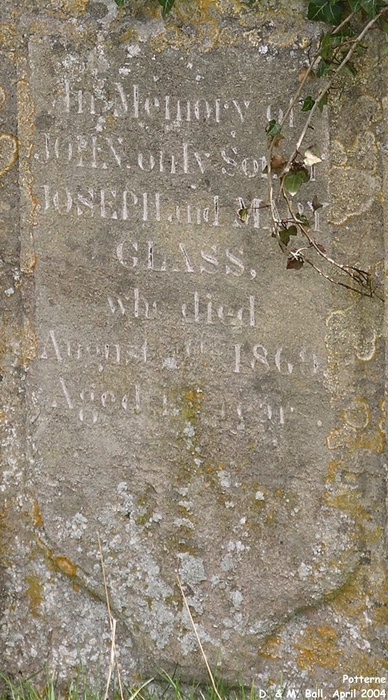 In Memory of
JOHN, only Son of
JOSEPH and MARY
GLASS,
who died
August 186
Aged
Potterne
D. & M. Ball, April 2004